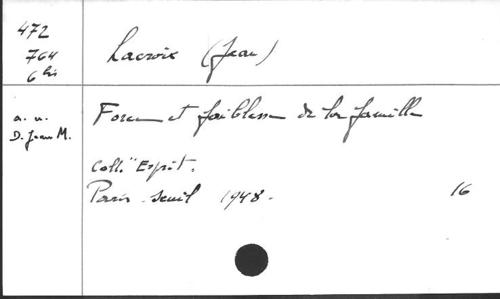 472
764
6 bis
Lacroix (Jean)
a. u.
D. Jean M.
Force et faiblesse de la famille
Coll. "Esprit.
Paris. Seuil 1948.
16